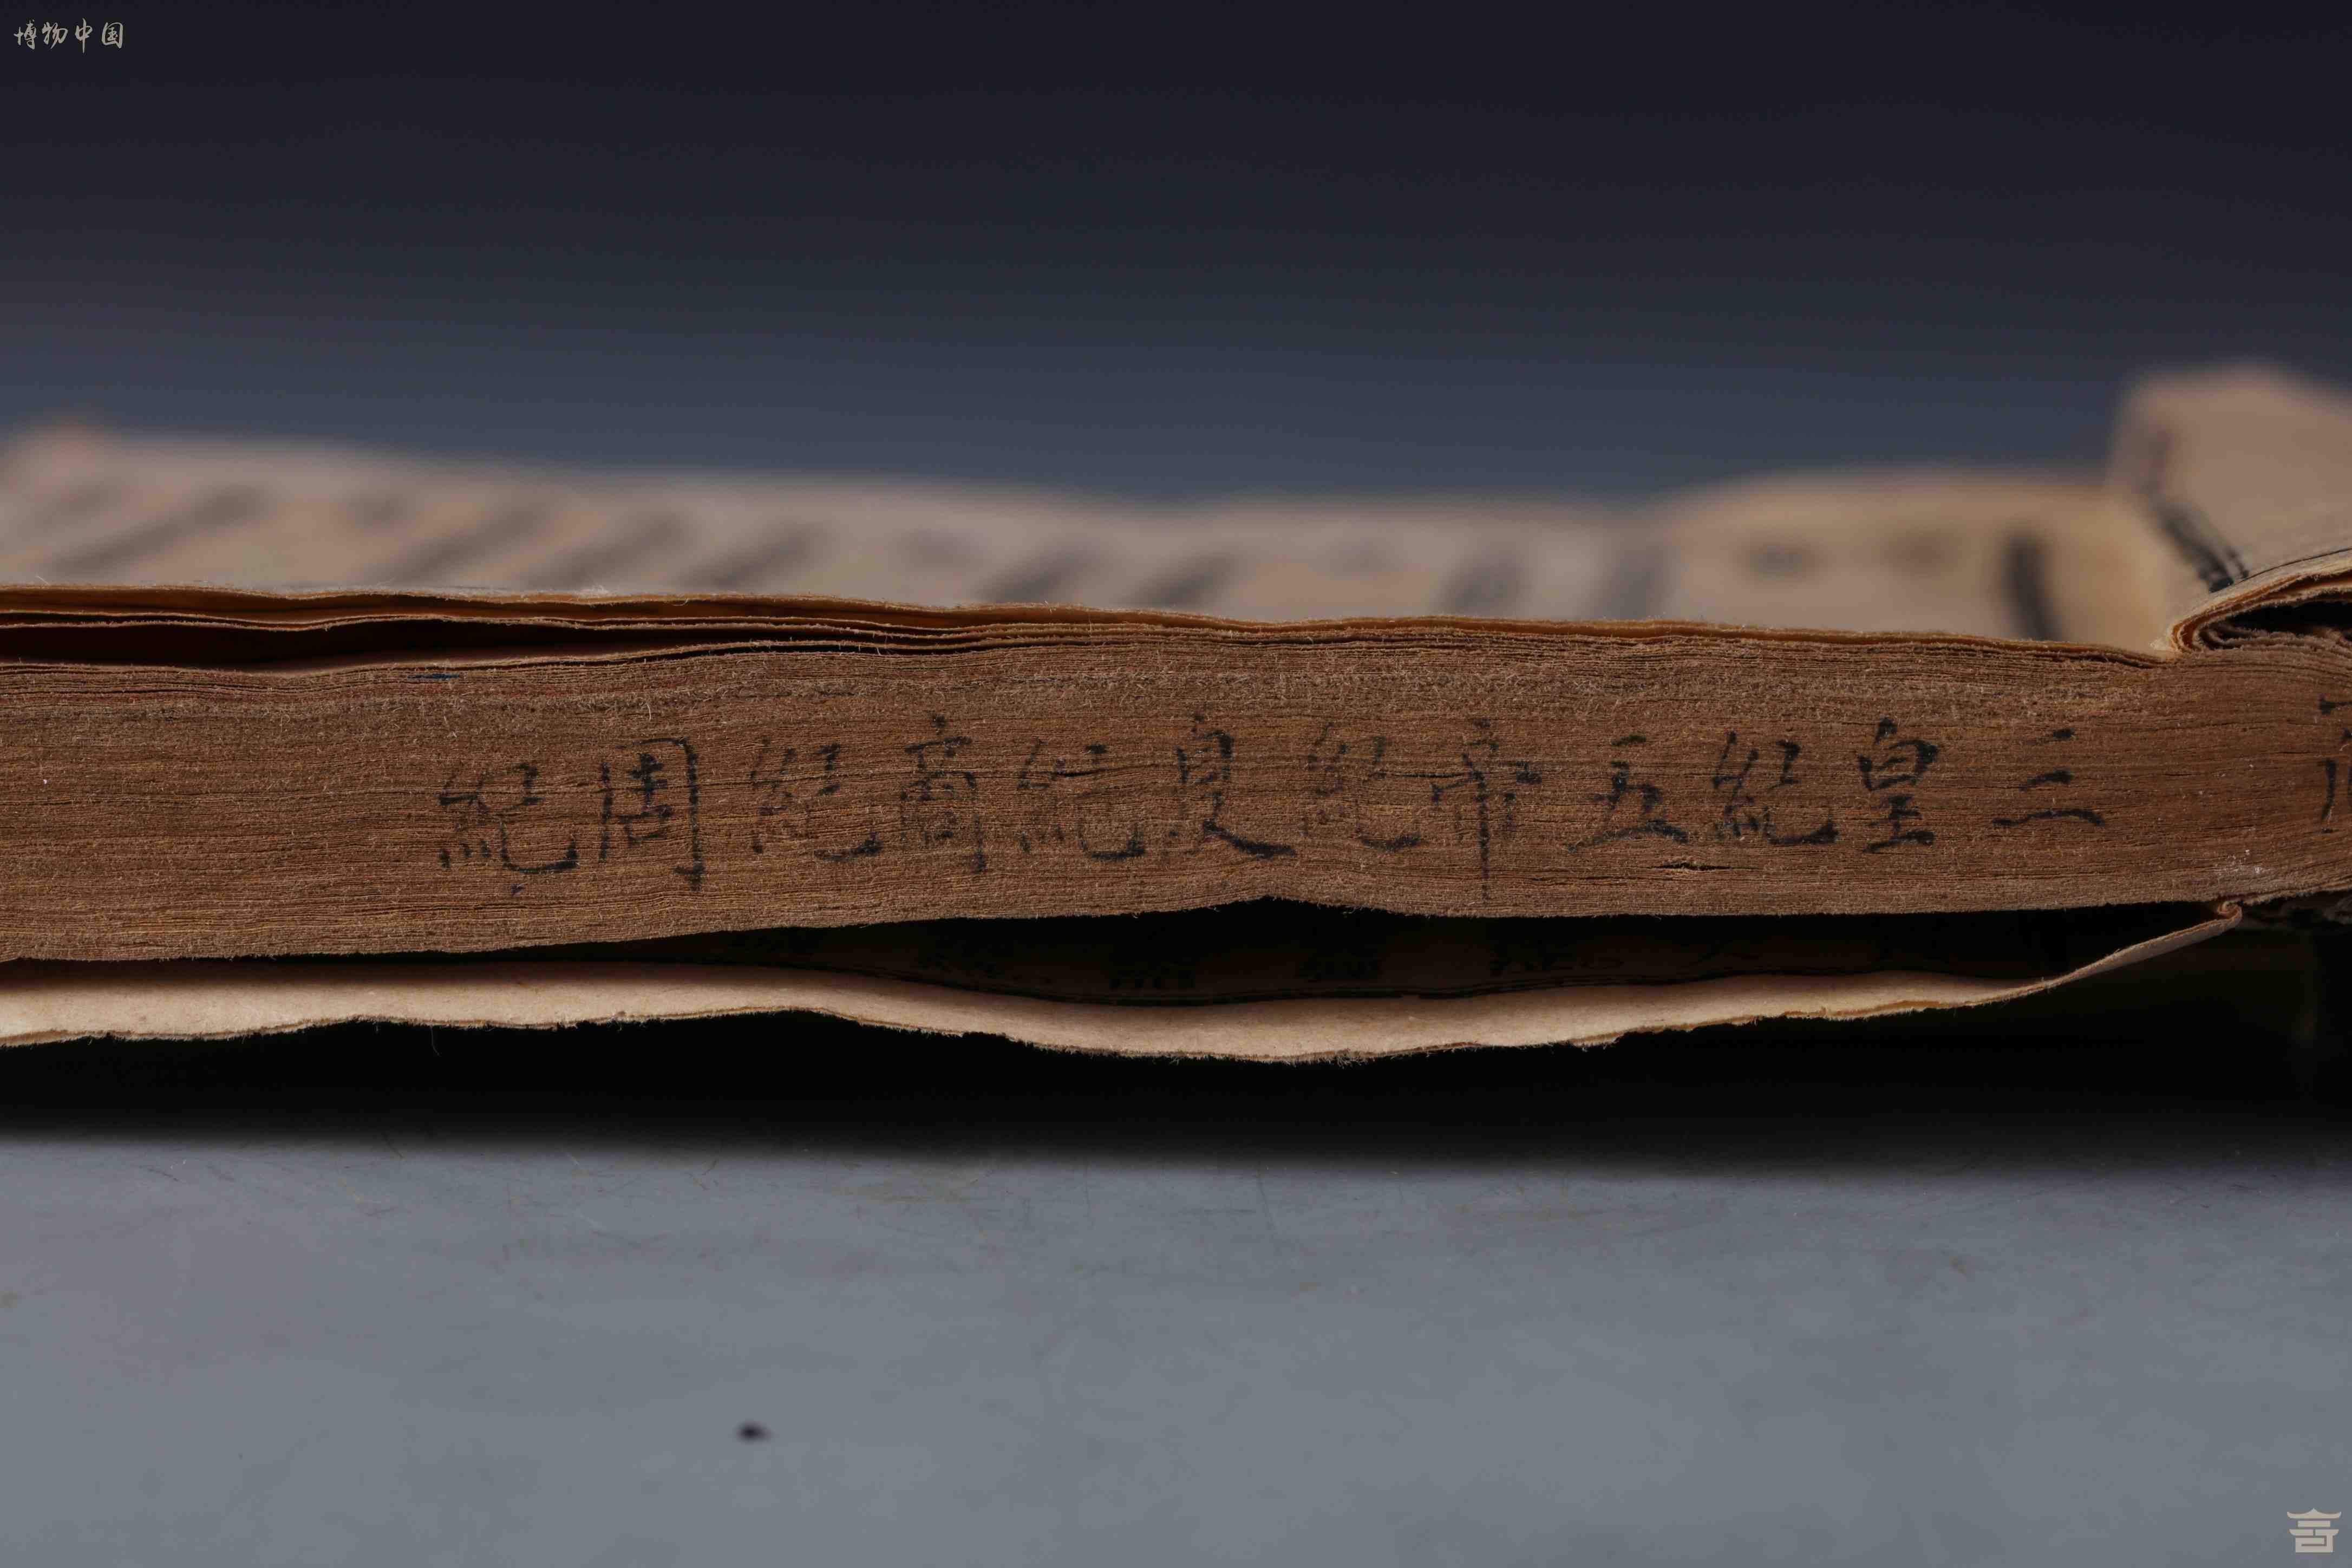 博物中国
三皇紀五帝紀夏紀商紀周紀